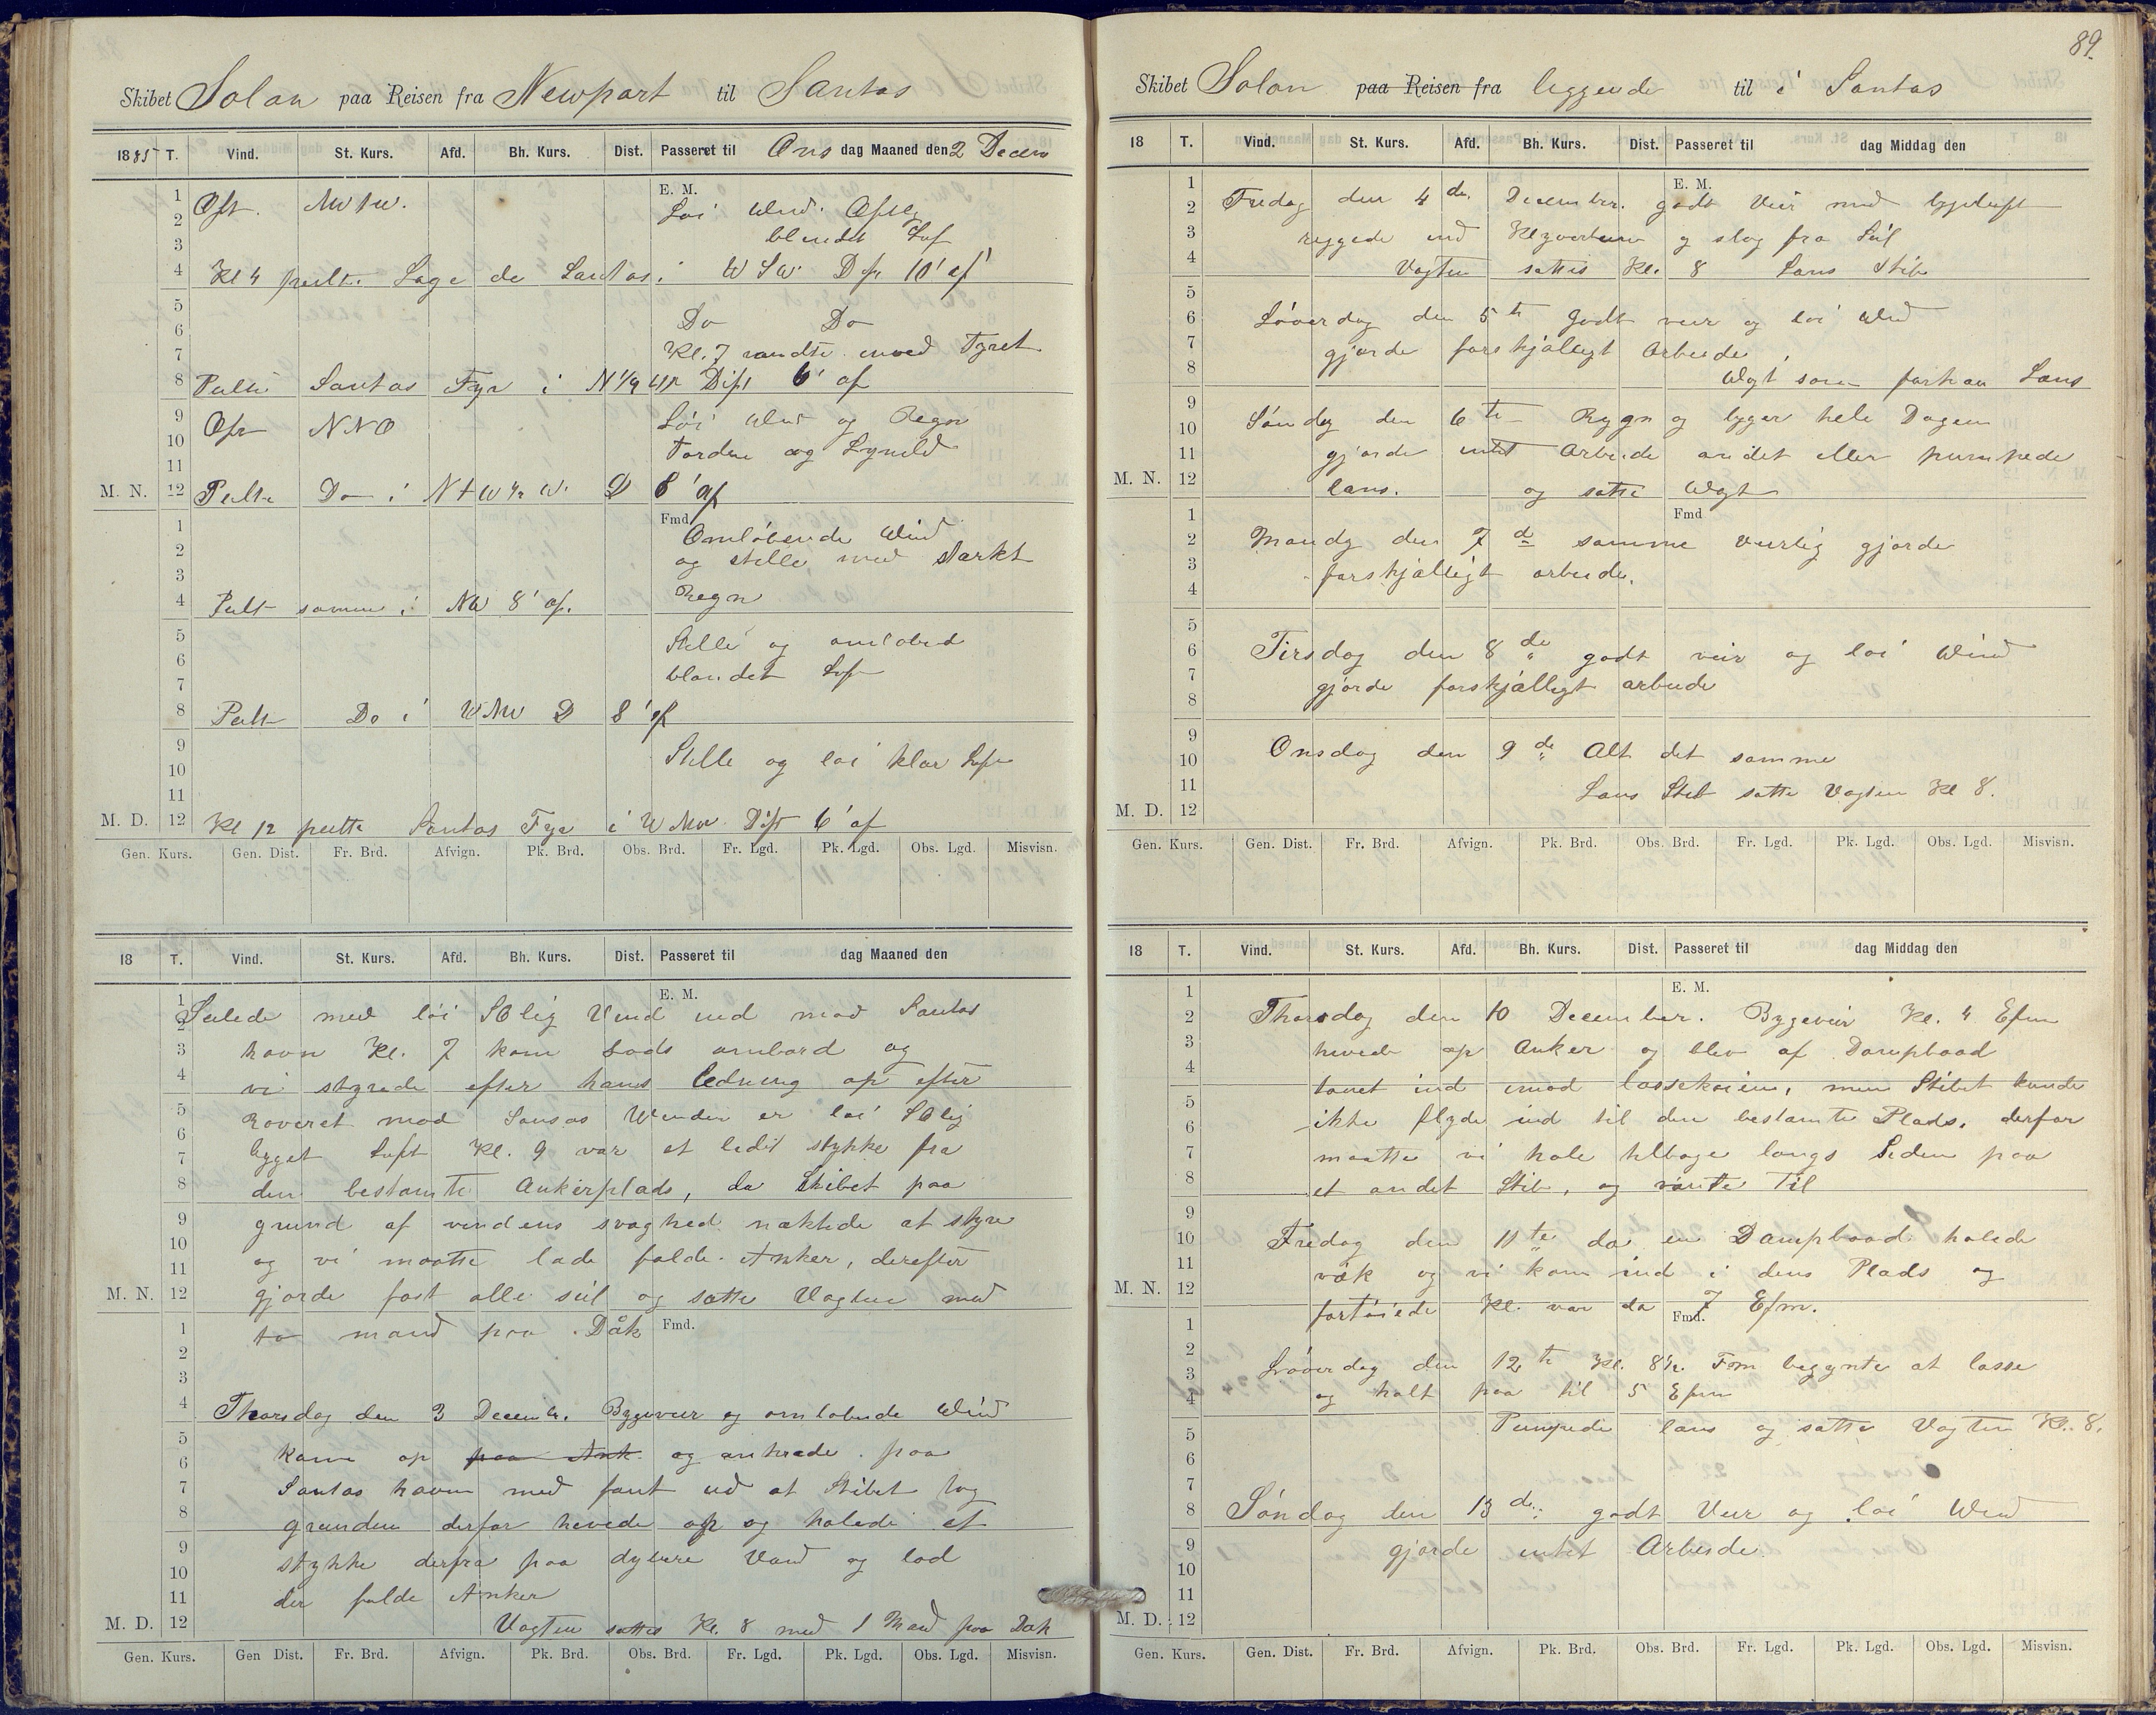 Skibet Solon paa Reisen fra Newport til Santos
1885 T. Vind. St. Kurs. Afd. Bh. Kurs. Dist. Passeret til Ons dag Maaned den 2 Decem
E. M.
Ost. NWtW. Løi Wind.
blandet Luf
Kl 4 peilt. Lage de Santos i WSW Dis 10' af
Do Do
Kl. 7 vendte mod Fyret
Peilte Santos Fyr i N 1/4 Dist 6' af
Ost NNO Løi Wind og Regn
Torden og Lynild
M. N. Peilte Do i NtW 1/2 W. D 8' af
Fmd
Omløbende Wind
og stille med stærkt
Peilt samme i NW 8' af. Regn
Stille og omløbed
blandet Luft
Peilt Do i WNW D 8' af
Stille og løi klar Luft
M. D. Kl 12 peilte Santos Fyr i WNW Dist 6' af
Gen. Kurs. Gen. Dist. Fr. Brd. Afvign. Pk. Brd. Obs. Brd. Fr. Lgd. Pk. Lgd. Obs. Lgd. Misvisn.
18 T. Vind. St. Kurs. Afd. Bh. Kurs. Dist. Passeret til dag Maaned den
E. M.
Seilede med løi SOlig Vind ind mod Santos
havn Kl. 7 kom Lods ombord og
vi styrede efter hans ledning op efter
Roveret mod Sansos Winden er løi SOlig
bygget Luft Kl. 9 var et lidet stykke fra
den bestamte Ankerplads, da Skibet paa
grund af vindens svaghed naktede at styre
og vi maatte lade falde Anker, derefter
M. N. gjorde fast alle seil og satte Vagten med
to mand paa Dåk Fmd.
Thorsdag den 3 Decemb. Bygeveir og omløbende Wind
kom op paa Ank og ankrede paa
Santos havn med fant ud at Skibet tog
grunden derfor hevede op og halede et
stykke derfra paa dybere Vand og lod
der falde Anker
M. D. Vagten sattes Kl. 8 med 1 Mand paa Dæk
Gen. Kurs. Gen Dist. Fr. Brd. Afvign. Pk. Brd. Obs. Brd. Fr. Lgd. Pk. Lgd. Obs. Lgd. Misvisn.
89.
Skibet Solon paa Reisen fra liggende til i Santos
18 T. Vind. St. Kurs. Afd. Bh. Kurs. Dist. Passeret til dag Middag den
E. M.
Fredag den 4de December. godt Veir med bygeluft
ryggede og slog fra Seil
Vagten sattes Kl. 8 Lans Skib
Løverdag den 5te Godt veir og løi Wind
gjorde forskjælligt Arbeide
Wagt som forhen Lans
Søndag den 6te Regn og byger hele Dagen
gjorde intet Arbeide andet eller pumpede
M. N. lans. og satte Wagt
Fmd
Mandg den 7de samme veirlig gjorde
forskjælligt arbeide.
Tirsdag den 8de godt veir og løi Wind
gjorde forskjælligt arbeide
Onsdag den 9de Alt det samme
Lans Skib satte Vagten Kl 8.
M. D.
Gen. Kurs. Gen. Dist. Fr. Brd. Afvign. Pk. Brd. Obs. Brd. Fr. Lgd. Pk. Lgd. Obs. Lgd. Misvisn.
18 T. Vind. St. Kurs. Afd. Bh. Kurs. Dist. Passeret til dag Middag den
E. M.
Thorsdag den 10 December. Bygeveir Kl. 4 Efm
hevede op Anker og blev af Dampbaad
tauet ind imod lossekaien, men Skibet kunde
ikke flyde ind til den bestamte Plads. derfor
maatte vi hale tilbage langs Siden paa
et andet Skib, og vænte til
Fredag den 11te da en Dampbaad halede
væk og vi kom ind i dens Plads og
M. N. fortøiede Kl. var da 7 Efm.
Fmd.
Løverdag den 12te Kl. 8 1/2 Fm begynte at losse
og holt paa til 5 Efm
Pumpede lans og satte Vagten Kl. 8.
Søndag den 13de godt Veir og løi Wind
gjorde intet Arbeide.
M. D.
Gen. Kurs. Gen. Dist. Fr. Brd. Afvign. Pk. Brd. Obs. Brd. Fr. Lgd. Pk. Lgd. Obs. Lgd. Misvisn.